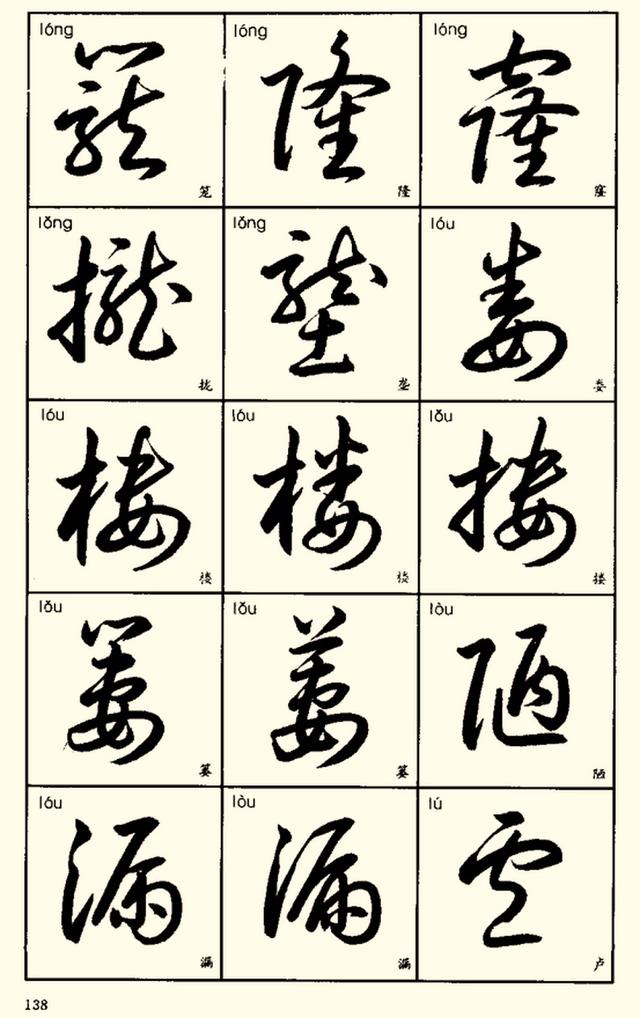 lóng lóng lóng
笼 隆 窿
lǒng lǒng lóu
拢 垄 娄
lóu lóu lǒu
楼 楼 搂
lǒu lǒu lòu
篓 篓 陋
lóu lòu lú
漏 漏 卢
138